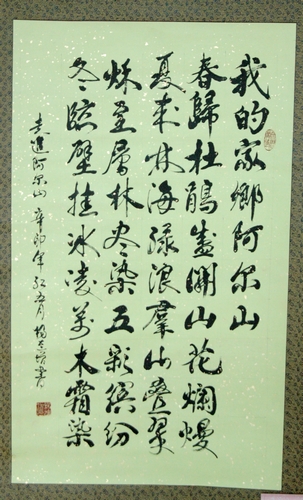 我的家鄉阿尔山
春歸杜鵑盛開山花爛熳
夏来林海绿浪羣山叠翠
秋至層林尽染五彩缤纷
冬临壁挂冰凌万木霜染
走進阿尔山 辛卯年 月 书